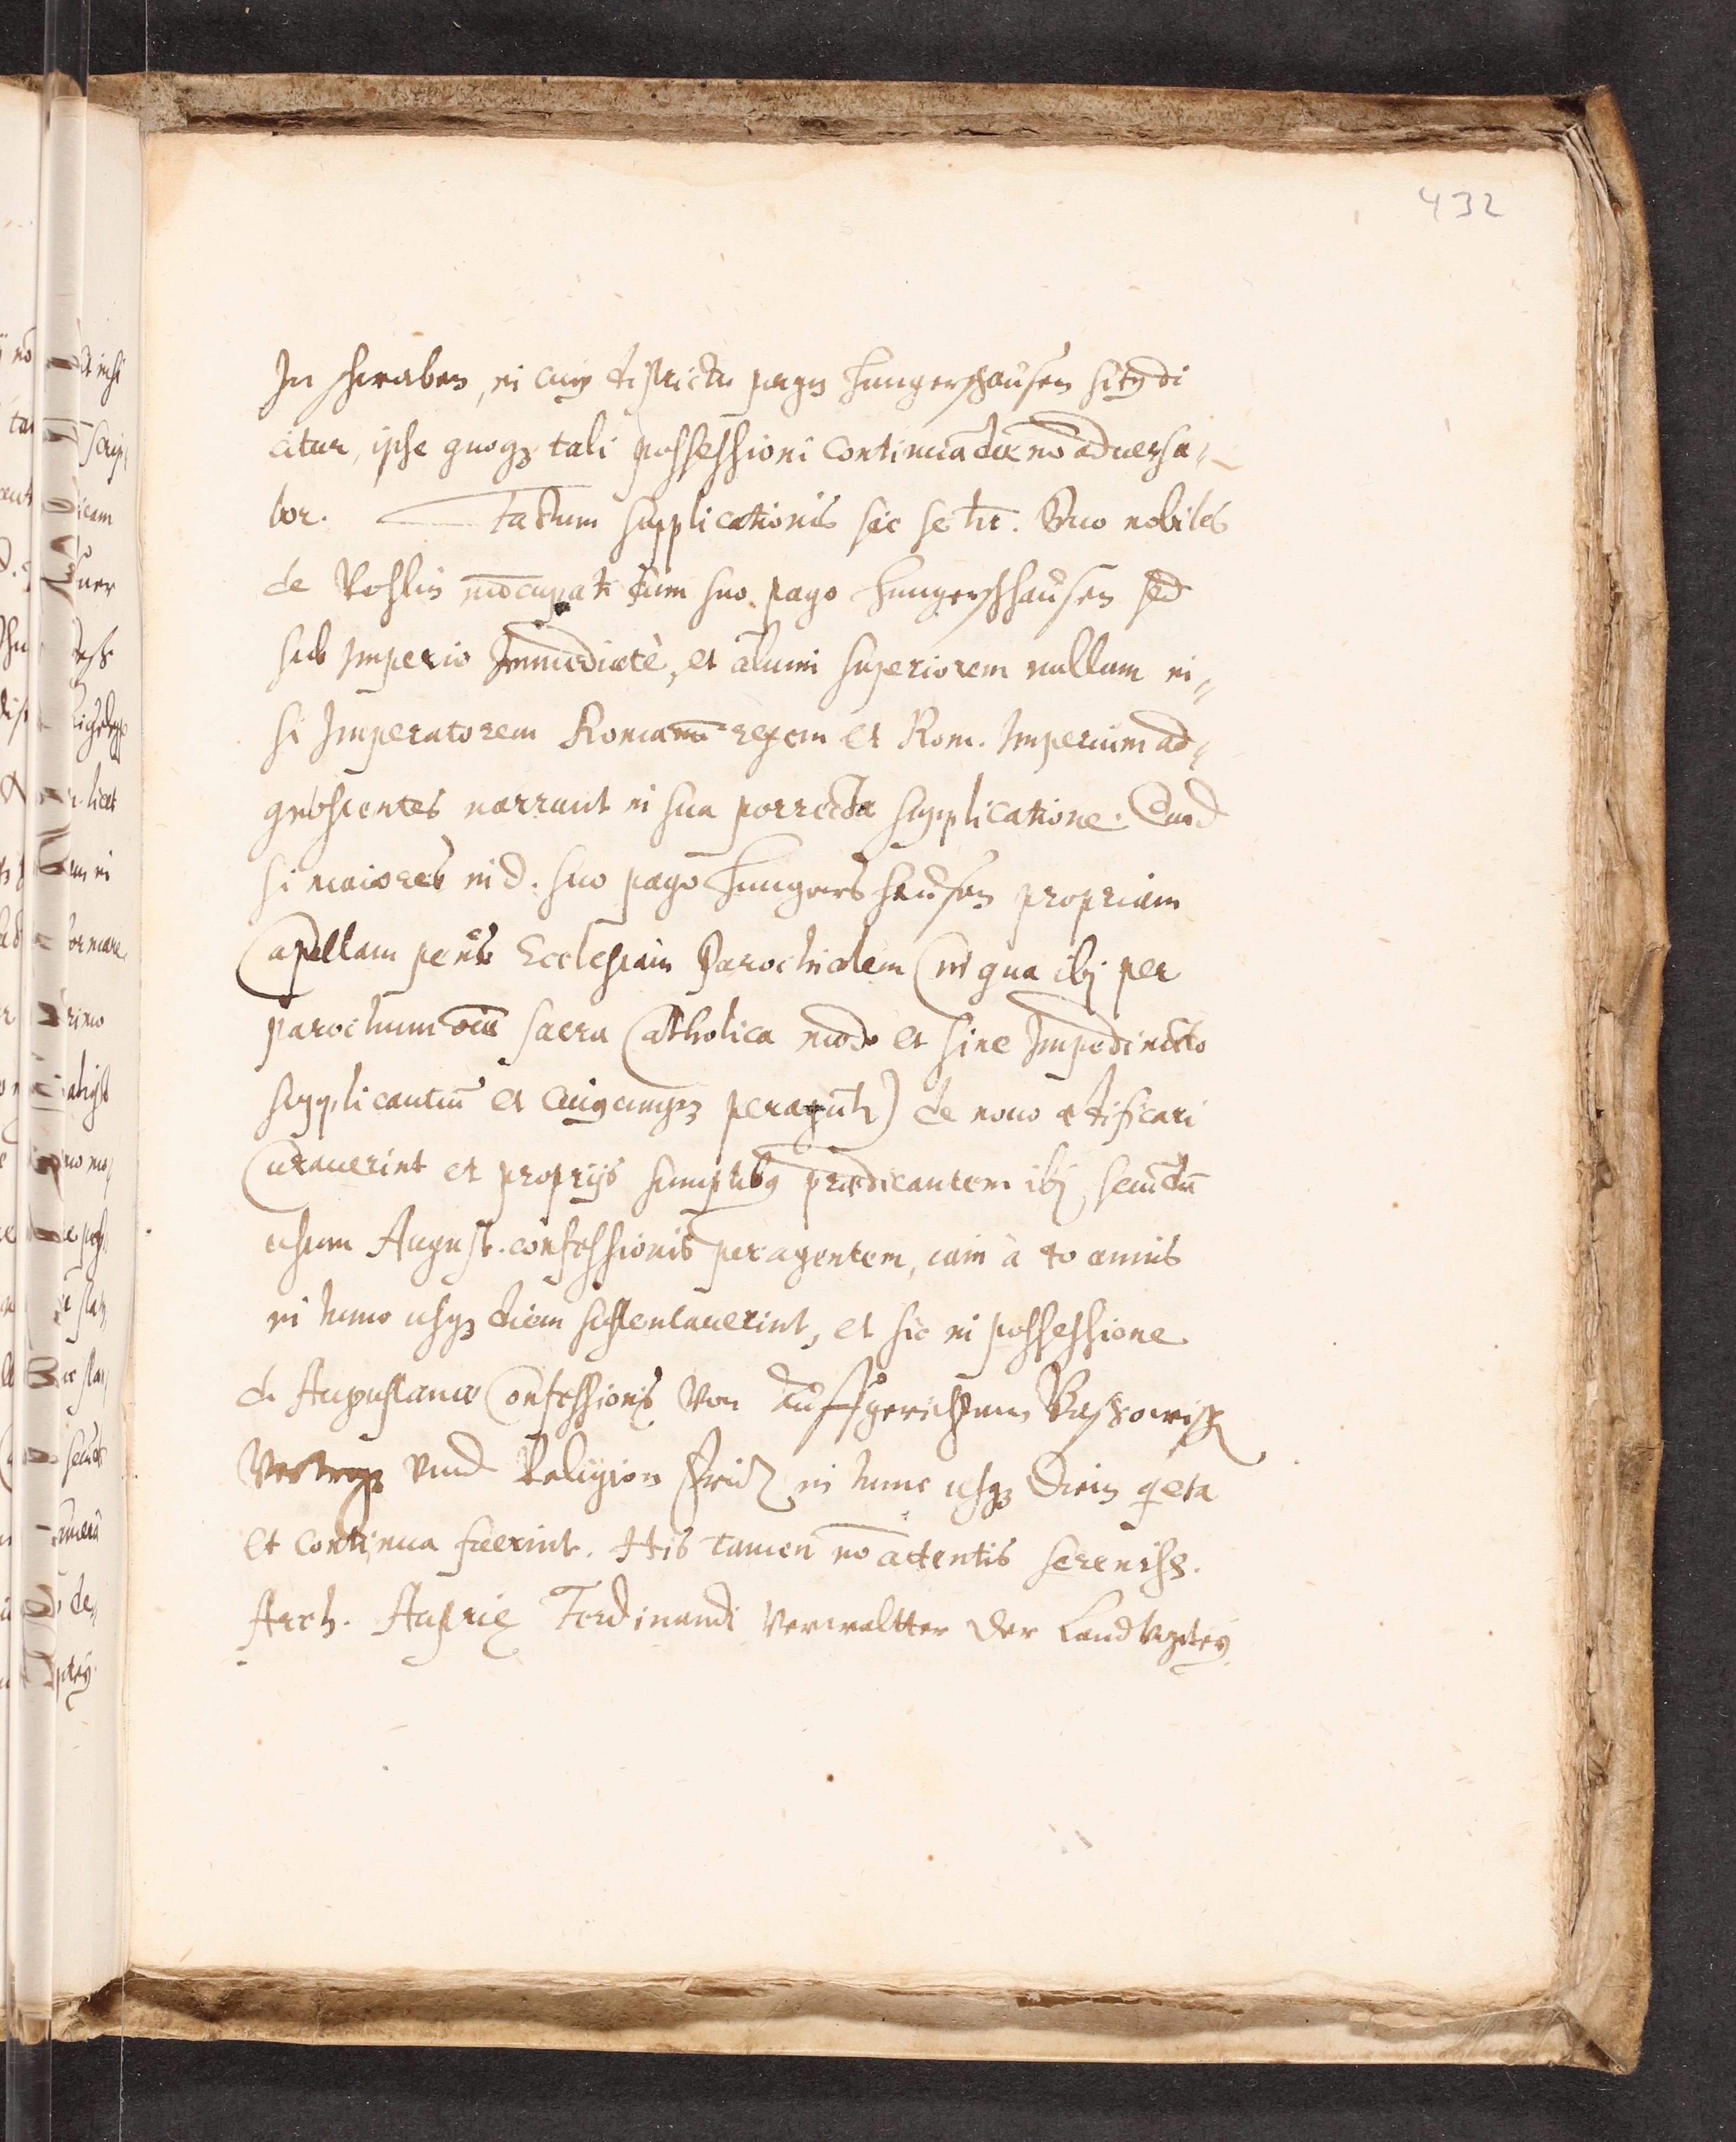 432
In Schwaben, in cuiꝰ districtu pagꝰ Hungershausen sitꝰ di
citur, ipse quoqꝫ tali possessioni continuādæ nō aduersa„
bor. Factum supplicationis sic se ht̄. Duo nobiles
de Rohlin nūcupati cum suo pago Hungershhausen sed
sub Imperio Immediatè, et aliūm superiorem nullum ni„
si Imperatorem Romanū regem et Rom. Imperium ad„
gnoscentes narrant in sua porrecta supplicatione. Quod
si maiores in d. suo pago Hungershausen propriam
Capellam penès Ecclesiam Parochialem (in qua ibj per
parochum oīa sacra Catholica modo et sine Impedimēto
supplicantiū et cuiꝰcunqꝫ peragūt) de nouo ædificari
Curauerint et proprijs sumptibꝰ prædicantem ibj secūdū
usum August. confessionis peragentem, iam à 40 annis
in hunc usqꝫ diem sustentauerint, et sic in possessione
d. Augustanæ Confessionis Von Auffgerichtem Passowisch
Vertrag vnnd Religion fridt in hunc usqꝫ diem qeta
et continua fuerint. His tamen nō attentis sereniss.
Arch. Austriæ Ferdinandi Verwaltter der Landtvogtey